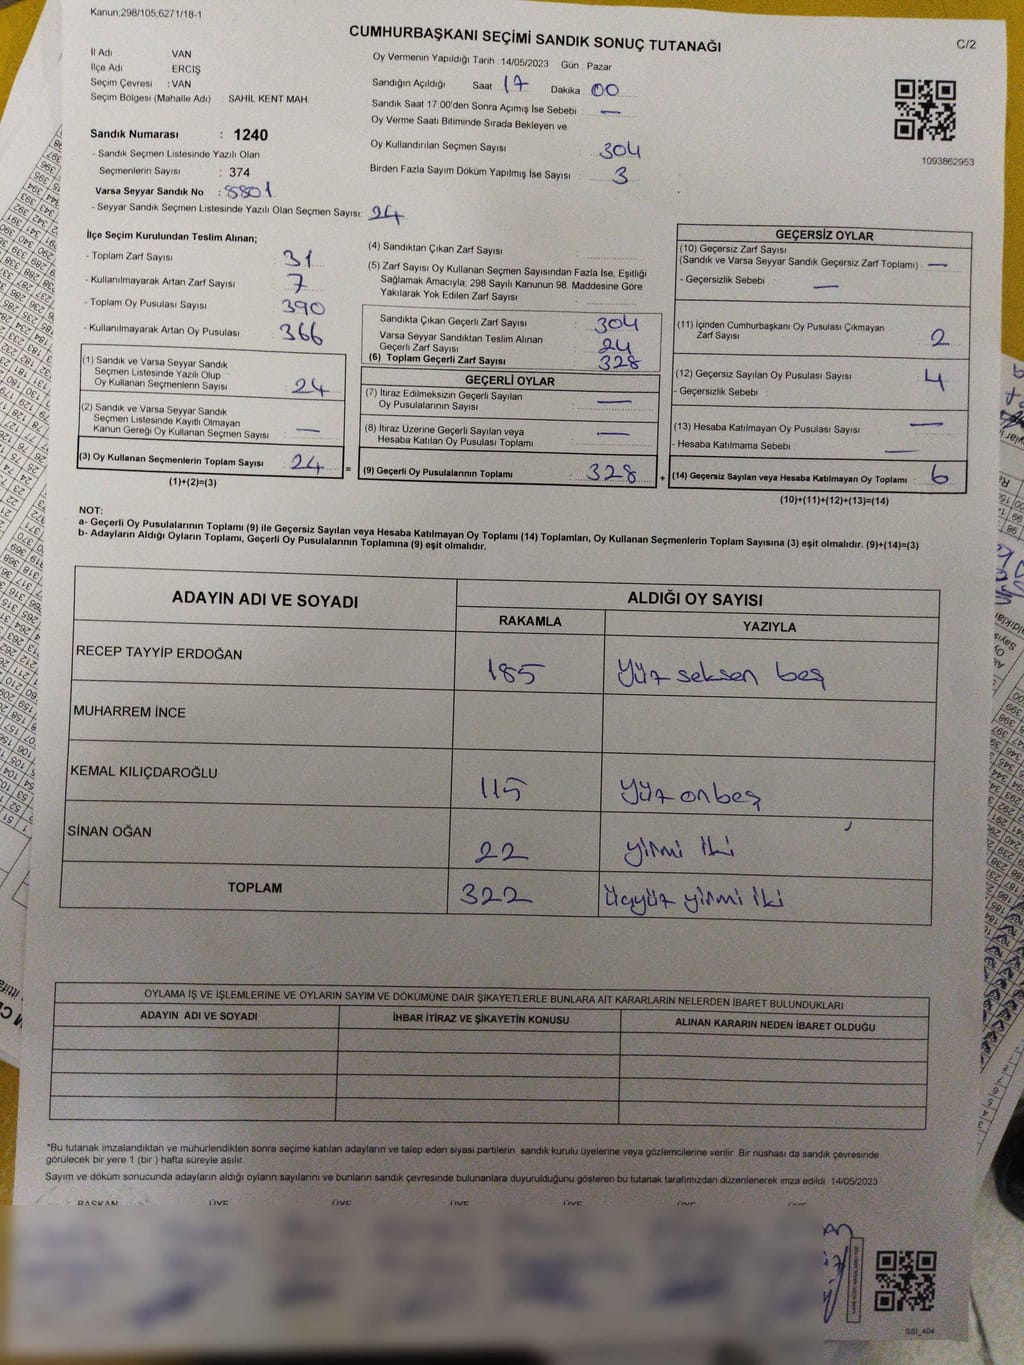 Kanun:298/105,6271/18-1
CUMHURBAŞKANI SEÇİMİ SANDIK SONUÇ TUTANAĞI
C/2
İl Adı VAN
İlçe Adı ERCİŞ
Seçim Çevresi : VAN
Seçim Bölgesi (Mahalle Adı) : SAHİL KENT MAH.
Oy Vermenin Yapıldığı Tarih : 14/05/2023 Gün : Pazar
Sandığın Açıldığı Saat 17 Dakika : 00
Sandık Saat 17.00'den Sonra Açımış İse Sebebi : —
Oy Verme Saati Bitiminde Sırada Bekleyen ve
Oy Kullandırılan Seçmen Sayısı 304
Birden Fazla Sayım Döküm Yapılmış İse Sayısı : 3
1093862953
Sandık Numarası : 1240
- Sandık Seçmen Listesinde Yazılı Olan
Seçmenlerin Sayısı : 374
Varsa Seyyar Sandık No : 8801
- Seyyar Sandık Seçmen Listesinde Yazılı Olan Seçmen Sayısı: 24
İlçe Seçim Kurulundan Teslim Alınan;
- Toplam Zarf Sayısı : 31
- Kullanılmayarak Artan Zarf Sayısı : 7
- Toplam Oy Pusulası Sayısı : 390
- Kullanılmayarak Artan Oy Pusulası : 366
(1) Sandık ve Varsa Seyyar Sandık
Seçmen Listesinde Yazılı Olup
Oy Kullanan Seçmenlerin Sayısı : 24
(2) Sandık ve Varsa Seyyar Sandık
Seçmen Listesinde Kayıtlı Olmayan
Kanun Gereği Oy Kullanan Seçmen Sayısı : —
(3) Oy Kullanan Seçmenlerin Toplam Sayısı : 24 =
(1)+(2)=(3)
(4) Sandıktan Çıkan Zarf Sayısı :
(5) Zarf Sayısı Oy Kullanan Seçmen Sayısından Fazla İse, Eşitliği
Sağlamak Amacıyla; 298 Sayılı Kanunun 98. Maddesine Göre
Yakılarak Yok Edilen Zarf Sayısı :
Sandıkta Çıkan Geçerli Zarf Sayısı : 304
Varsa Seyyar Sandıktan Teslim Alınan
Geçerli Zarf Sayısı : 24
(6) Toplam Geçerli Zarf Sayısı : 328
GEÇERLİ OYLAR
(7) İtiraz Edilmeksizin Geçerli Sayılan
Oy Pusulalarının Sayısı : —
(8) İtiraz Üzerine Geçerli Sayılan veya
Hesaba Katılan Oy Pusulası Toplamı : —
(9) Geçerli Oy Pusulalarının Toplamı : 328 +
GEÇERSİZ OYLAR
(10) Geçersiz Zarf Sayısı
(Sandık ve Varsa Seyyar Sandık Geçersiz Zarf Toplamı) : —
- Geçersizlik Sebebi : —
(11) İçinden Cumhurbaşkanı Oy Pusulası Çıkmayan
Zarf Sayısı : 2
(12) Geçersiz Sayılan Oy Pusulası Sayısı : 4
- Geçersizlik Sebebi :
(13) Hesaba Katılmayan Oy Pusulası Sayısı : —
- Hesaba Katılmama Sebebi : —
(14) Geçersiz Sayılan veya Hesaba Katılmayan Oy Toplamı : 6
(10)+(11)+(12)+(13)=(14)
NOT:
a- Geçerli Oy Pusulalarının Toplamı (9) ile Geçersiz Sayılan veya Hesaba Katılmayan Oy Toplamı (14) Toplamları, Oy Kullanan Seçmenlerin Toplam Sayısına (3) eşit olmalıdır. (9)+(14)=(3)
b- Adayların Aldığı Oyların Toplamı, Geçerli Oy Pusulalarının Toplamına (9) eşit olmalıdır.
ADAYIN ADI VE SOYADI
ALDIĞI OY SAYISI
RAKAMLA YAZIYLA
RECEP TAYYİP ERDOĞAN 185 Yüz seksen beş
MUHARREM İNCE
KEMAL KILIÇDAROĞLU 115 Yüz onbeş
SİNAN OĞAN 22 yirmi iki
TOPLAM 322 Üçyüz yirmi iki
OYLAMA İŞ VE İŞLEMLERİNE VE OYLARIN SAYIM VE DÖKÜMÜNE DAİR ŞİKAYETLERLE BUNLARA AİT KARARLARIN NELERDEN İBARET BULUNDUKLARI
ADAYIN ADI VE SOYADI İHBAR İTİRAZ VE ŞİKAYETİN KONUSU ALINAN KARARIN NEDEN İBARET OLDUĞU
*Bu tutanak imzalandıktan ve mühürlendikten sonra seçime katılan adayların ve talep eden siyasi partilerin sandık kurulu üyelerine veya gözlemcilerine verilir. Bir nüshası da sandık çevresinde
görülecek bir yere 1 (bir ) hafta süreyle asılır.
Sayım ve döküm sonucunda adayların aldığı oyların sayılarını ve bunların sandık çevresinde bulunanlara duyurulduğunu gösteren bu tutanak tarafımızdan düzenlenerek imza edildi. 14/05/2023
BAŞKAN ÜYE ÜYE ÜYE ÜYE ÜYE ÜYE
SSI_404